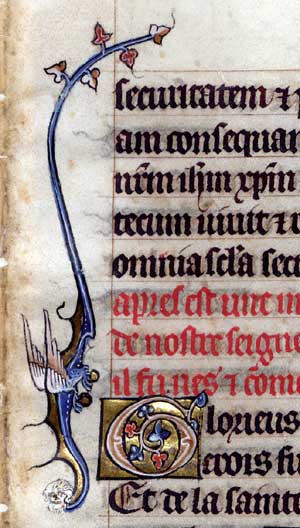 securitatem ⁊ p
am consequar
nr̄m ihm xpm
tecum uiuit ⁊ r
omnia scl̄a secl
apres est une
de nostre seigne
il fu nes ⁊ com
Glorieus
crois fu
Et de la sainte